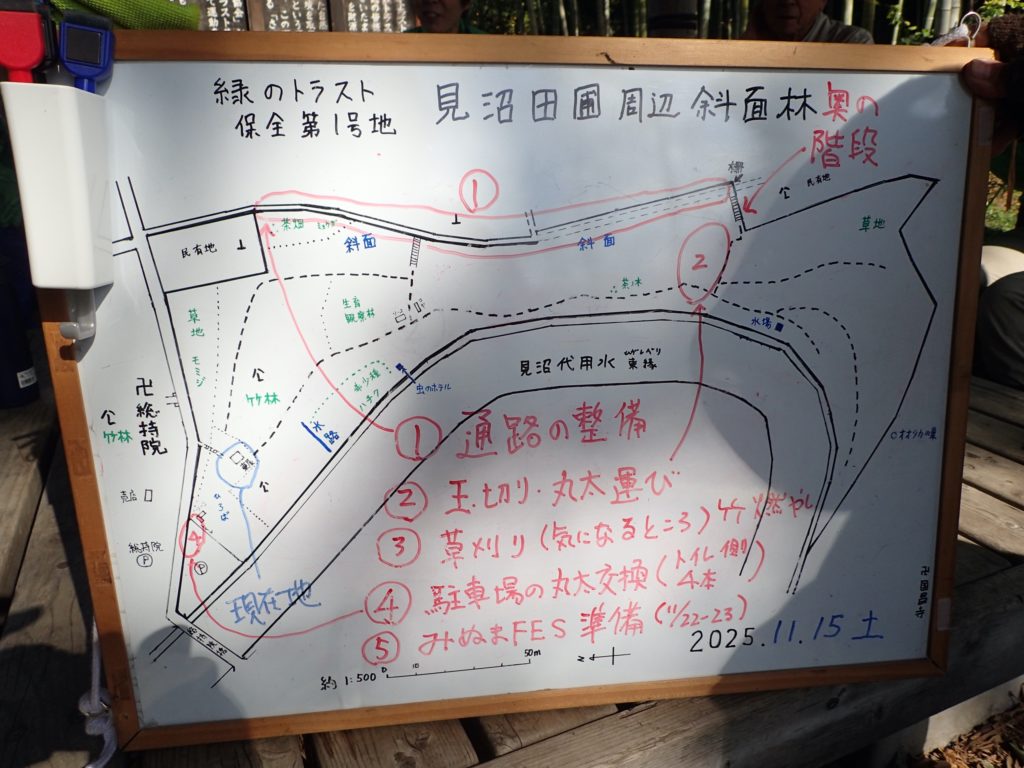 緑のトラスト
保全第1号地
見沼田圃周辺斜面林
奥の
階段
①
柵
民有地
茶畑
斜面
斜面
草地
民有地
②
茶ノ木
生産
観察林
水場
草地
モミジ
虫のホテル
見沼代用水
東縁
竹林
希少種
水路
卍総持院
竹林
オオタカの巣
売店
ひろば
④
総持院
P
P
現在地
①通路の整備
②玉切り・丸太運び
③草刈り(気になるところ)竹燃やし
④駐車場の丸太交換(トイレ側
4本)
⑤みぬまFES準備(11/22-23)
卍国昌寺
2025.11.15土
約1:500
0 10 50m
N